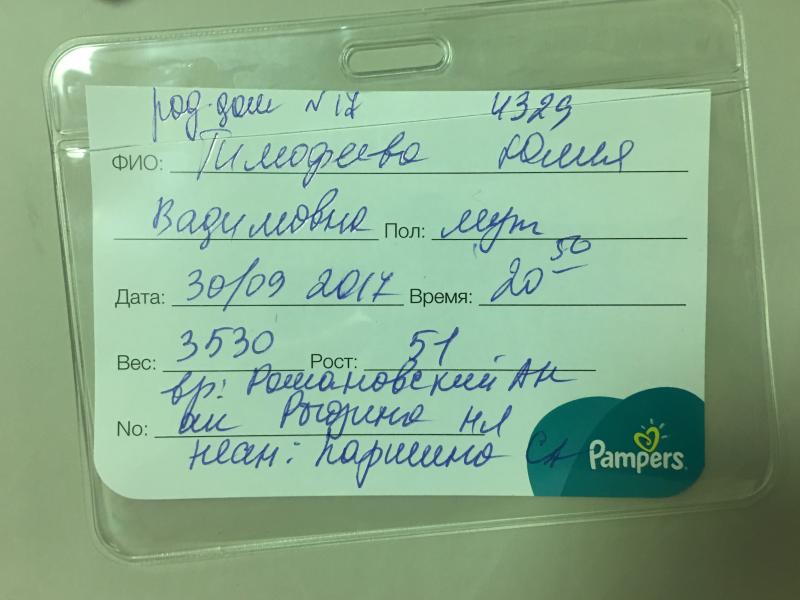 род. дом N 17 4329
ФИО: Тимофеева Юлия
Вадимовна Пол: муж
Дата: 30/09 2017 Время: 20 50
Вес: 3530 Рост: 51
вр: Романовский АН
No: ак Рыдина НЛ
неон: Паршина СА
Pampers